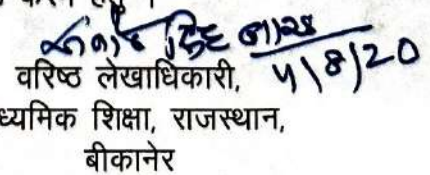 4/8/20
वरिष्ठ लेखाधिकारी,
ध्यमिक शिक्षा, राजस्थान,
बीकानेर